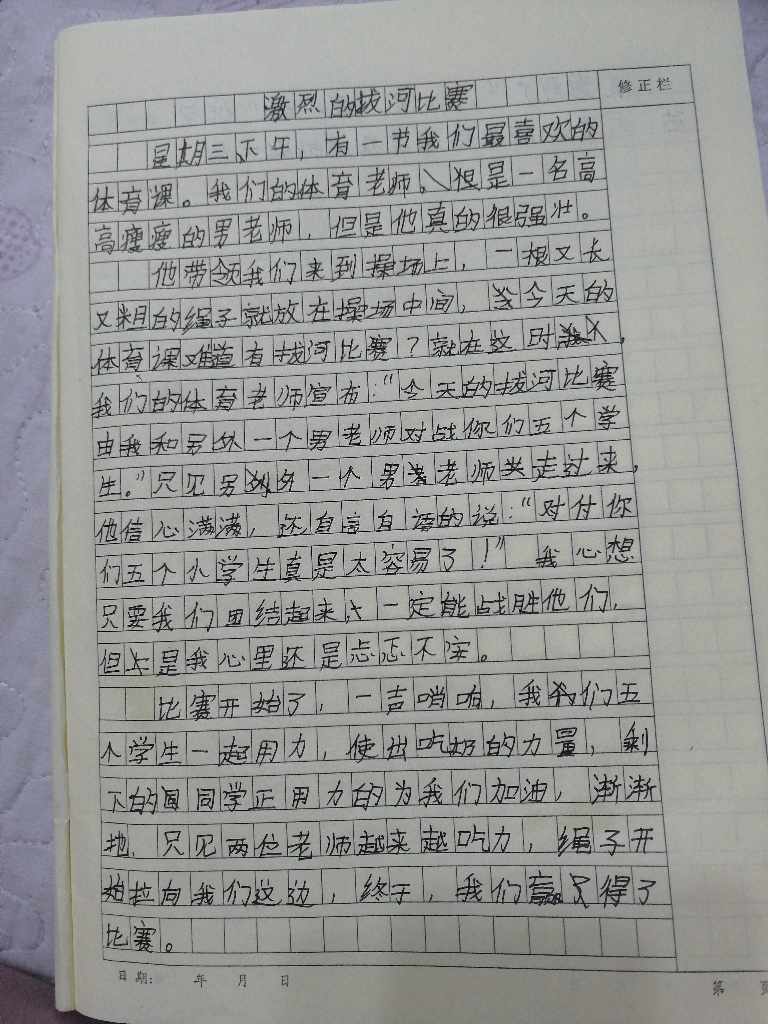 修正栏
激烈的拔河比赛
星期三下午，有一节我们最喜欢的
体育课。我们的体育老师、但是一名高
高瘦瘦的男老师，但是他真的很强壮。
他带领我们来到操场上，一根又长
又粗的绳子就放在操场中间，今天的
体育课难道有拔河比赛？就在这时，
我们的体育老师宣布：“今天的拔河比赛
由我和另外一个男老师对战你们五个学
生。”只见另外一个男老师走过来，
他信心满满，还自言自语的说：“对付你
们五个小学生真是太容易了！”我心想
只要我们团结起来，一定能战胜他们，
但是我心里还是忐忑不实。
比赛开始了，一声哨响，我们五
个学生一起用力，使出吃奶的力量，剩
下的同学正用力的为我们加油，渐渐
地，只见两位老师越来越吃力，绳子开
始拉向我们这边，终于，我们赢得了
比赛。
日期： 年 月 日
第 页